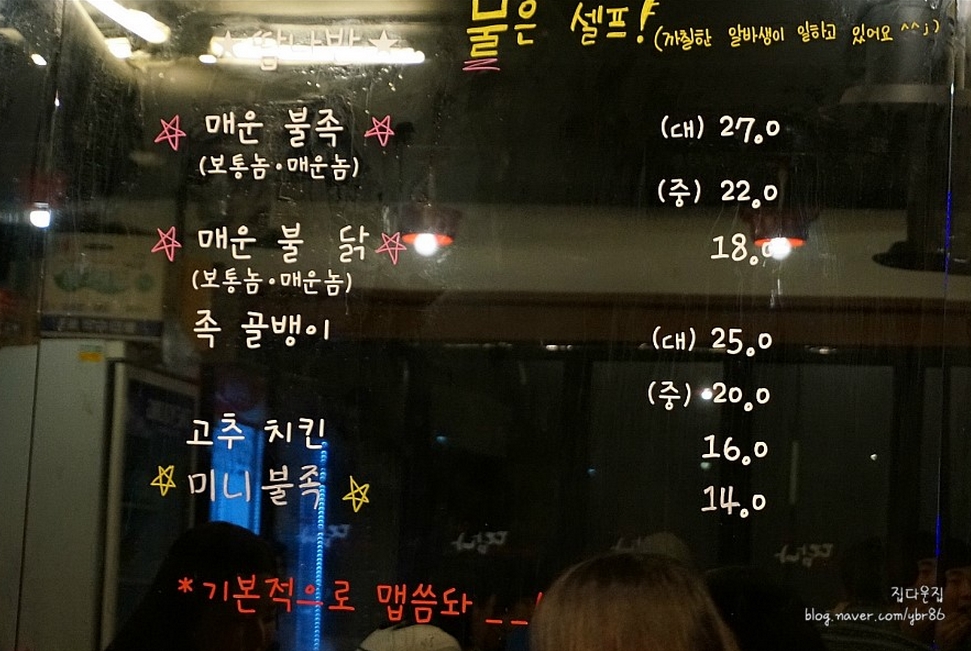 물은 셀프! (까칠한 알바생이 일하고 있어요 ^^;)
매운 불족 (대) 27.0
(보통놈·매운놈)
(중) 22.0
매운 불 닭 18.0
(보통놈·매운놈)
족 골뱅이 (대) 25.0
(중) 20.0
고추 치킨 16.0
미니 불족 14.0
*기본적으로 맵씀돠 _ _!
집다운집
blog.naver.com/ybr86